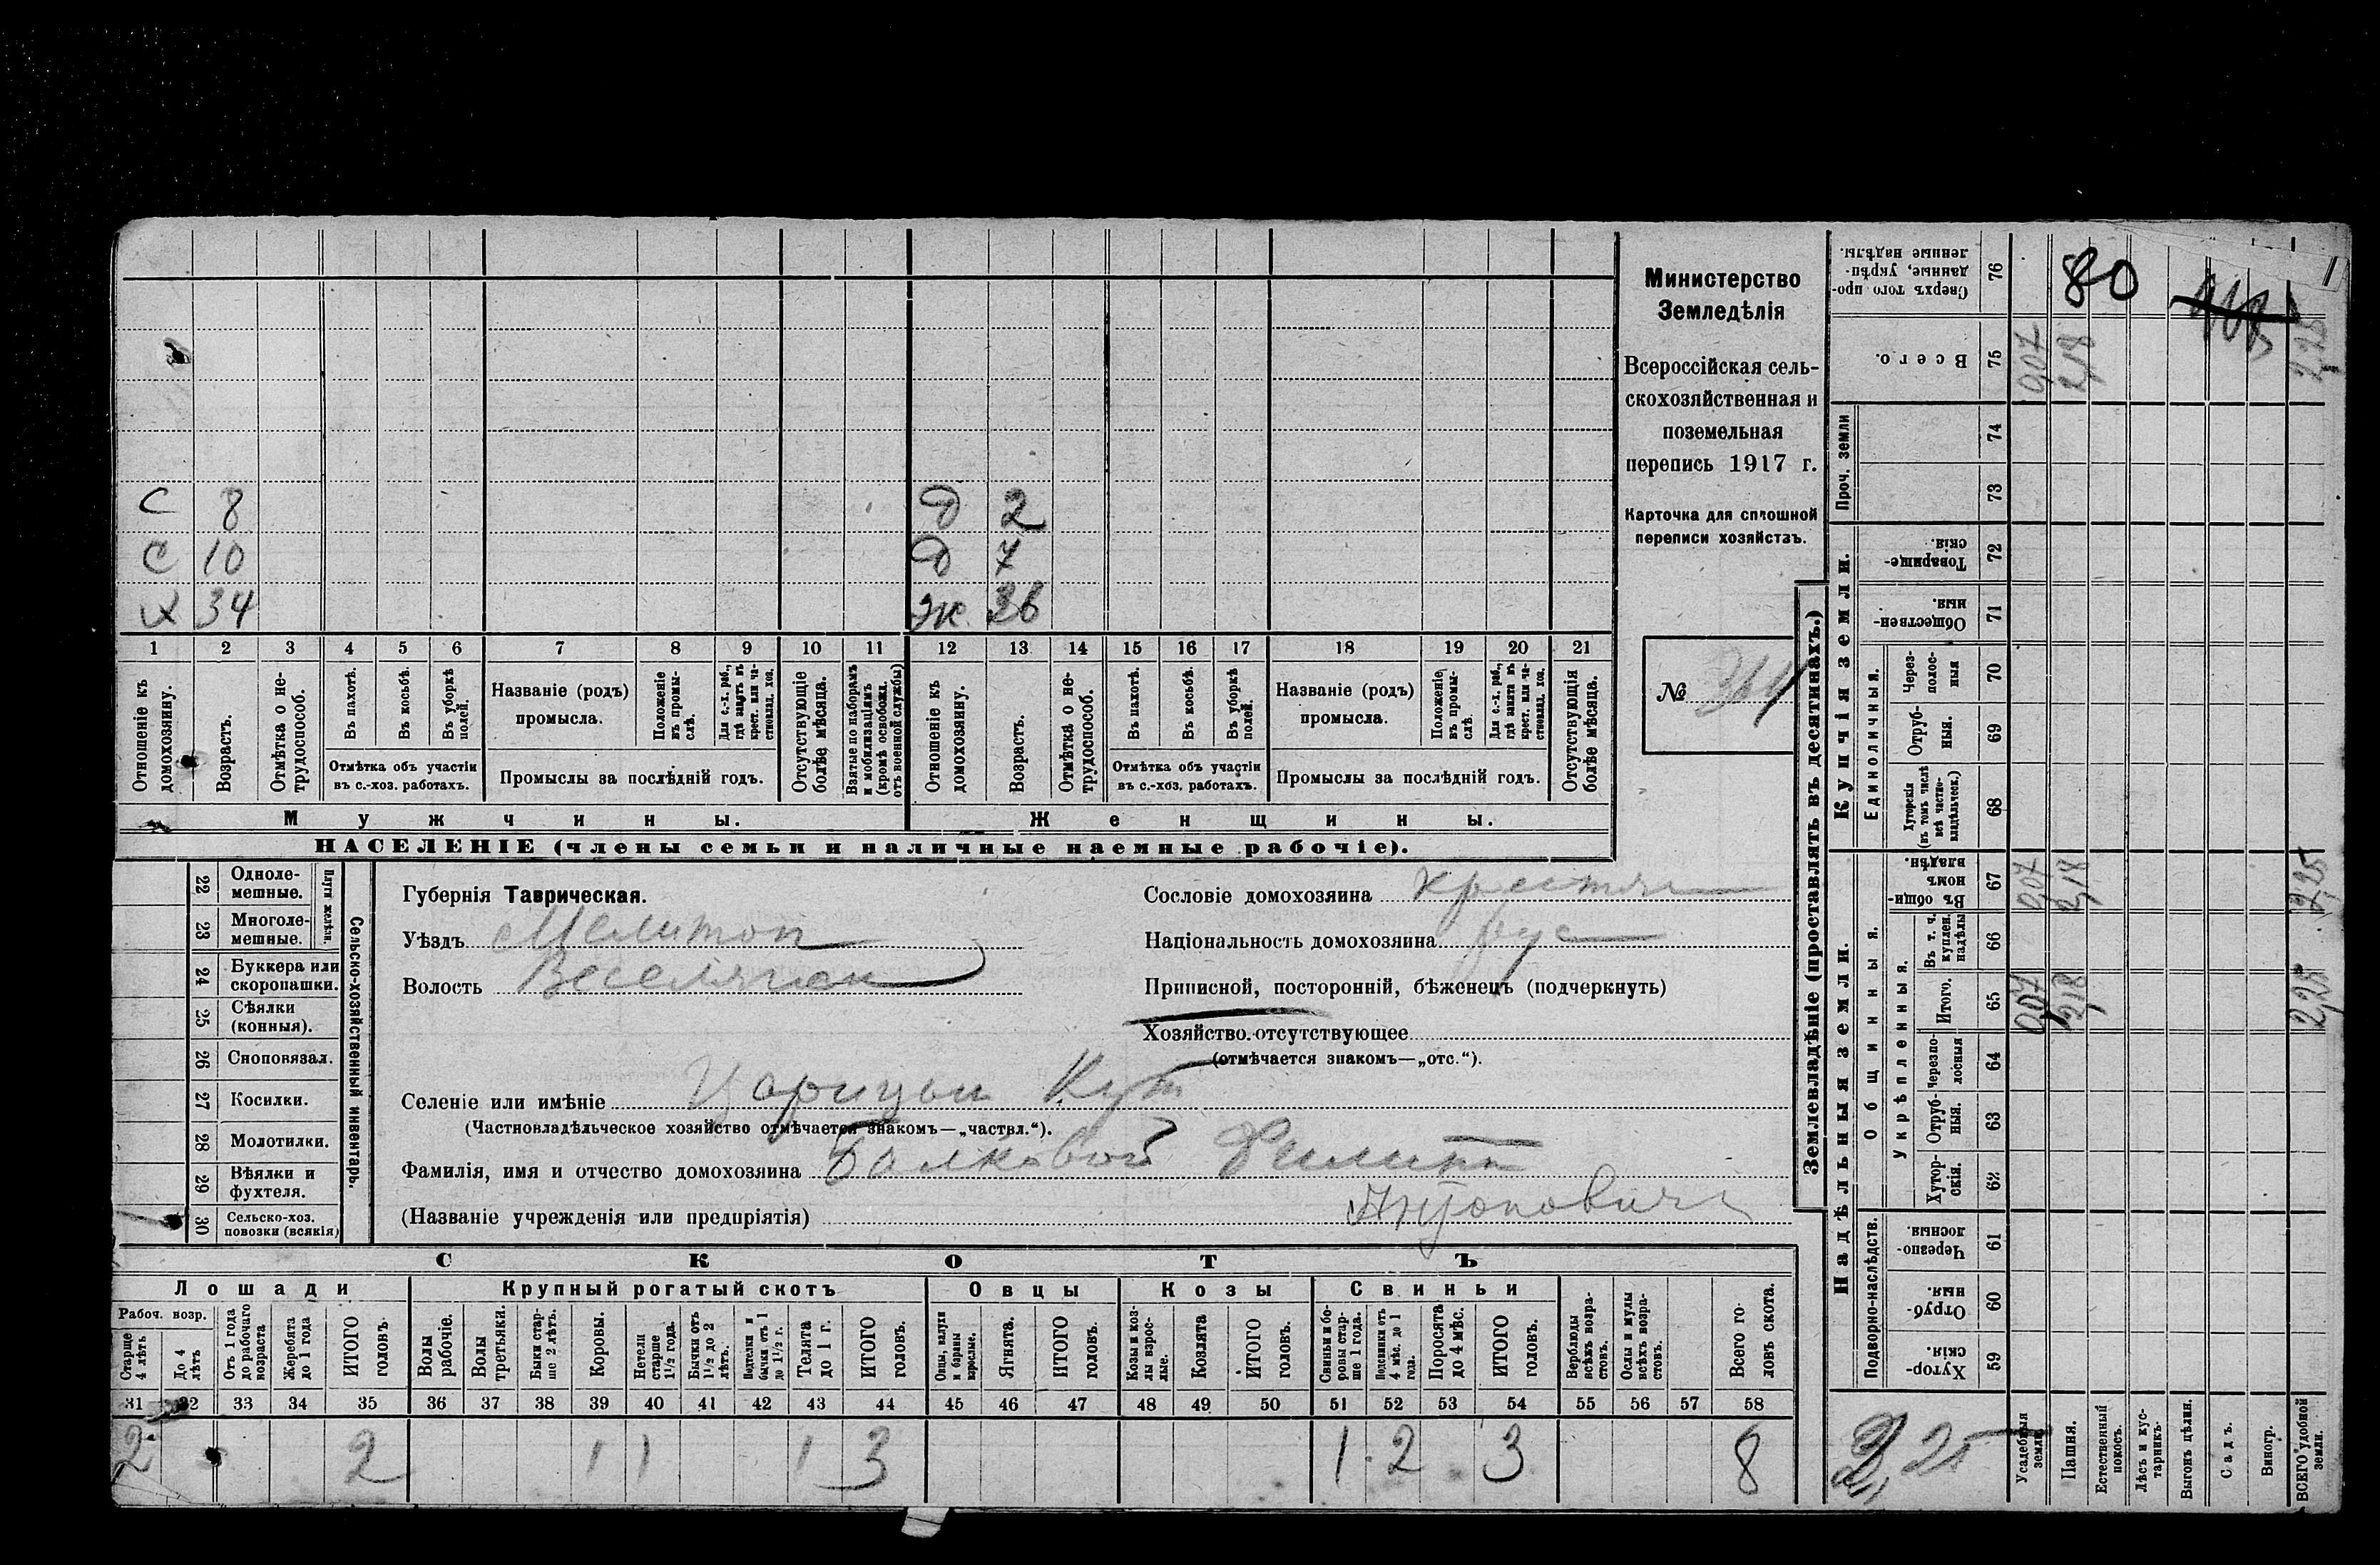 С 8 Д 2
С 10 Д 7
Х 34 Ж 36
1 2 3 4 5 6 7 8 9 10 11 12 13 14 15 16 17 18 19 20 21
Отношеніе къ домохозяину.
Возрастъ.
Отмѣтка о не-
трудоспособ.
Въ пахотѣ.
Въ косьбѣ.
Въ уборкѣ
полей.
Отмѣтка объ участіи
въ с.-хоз. работахъ.
Названіе (родъ)
промысла.
Положеніе
въ промы-
слѣ.
Для с.-х. раб.,
гдѣ занятъ въ
крест. или ча-
стновлад. хоз.
Промыслы за послѣдній годъ.
Отсутствующіе
болѣе мѣсяца.
Взятые по наборамъ
и мобилизаціямъ
(кромѣ освобожд.
отъ военной службы)
Отношеніе къ
домохозяину.
Возрастъ.
Отмѣтка о не-
трудоспособ.
Въ пахотѣ.
Въ косьбѣ.
Въ уборкѣ
полей.
Отмѣтка объ участіи
въ с.-хоз. работахъ.
Названіе (родъ)
промысла.
Положеніе
въ промы-
слѣ.
Для с.-х. раб.,
гдѣ занята въ
крест. или ча-
стновлад. хоз.
Промыслы за послѣдній годъ.
Отсутствующія
болѣе мѣсяца.
Мужчины.
Женщины.
НАСЕЛЕНІЕ (члены семьи и наличные наемные рабочіе).
Министерство
Земледѣлія
Всероссійская сель-
скохозяйственная и
поземельная
перепись 1917 г.
Карточка для сплошной
переписи хозяйствъ.
№
22 Одноле-
мешные.
23 Многоле-
мешные.
Плуги желѣзн.
24 Буккера или
скоропашки.
25 Сѣялки
(конныя).
26 Сноповязал.
27 Косилки.
28 Молотилки.
29 Вѣялки и
фухтеля.
30 Сельско-хоз.
повозки (всякія)
Сельско-хозяйственный инвентарь.
Губернія Таврическая.
Уѣздъ Мелитоп
Волость Веселянск
Сословіе домохозяина крестян
Національность домохозяина рус
Приписной, посторонній, бѣженецъ (подчеркнуть)
Хозяйство отсутствующее
(отмѣчается знакомъ—„отс.“).
Селеніе или имѣніе Царицын Кут
(Частновладѣльческое хозяйство отмѣчается знакомъ—„частвл.“).
Фамилія, имя и отчество домохозяина Балковой Филипп
(Названіе учрежденія или предпріятія) Антонович
СКОТЪ
Лошади
Крупный рогатый скотъ
Овцы
Козы
Свиньи
Рабоч. возр.
Старше
4 лѣтъ
До 4
лѣтъ
Отъ 1 года
до рабочаго
возраста
Жеребята
до 1 года
ИТОГО
головъ.
Волы
рабочіе.
Волы
третьяки.
Быки стар-
ше 2 лѣтъ.
Коровы.
Нетели
старше
1½ года.
Бычки отъ
1½ до 2
лѣтъ.
Подтелки и
бычки отъ 1
до 1½ г.
Телята
до 1 г.
ИТОГО
головъ.
Овцы, валухи
и бараны
взрослые.
Ягнята.
ИТОГО
головъ.
Козы и коз-
лы взрос-
лые.
Козлята
ИТОГО
головъ.
Свиньи и бо-
ровы стар-
ше 1 года.
Подсвинки отъ
4 мѣс. до 1
года.
Поросята
до 4 мѣс.
ИТОГО
головъ.
Верблюды
всѣхъ возра-
стовъ.
Ослы и мулы
всѣхъ возра-
стовъ.
Всего го-
ловъ скота.
31 32 33 34 35 36 37 38 39 40 41 42 43 44 45 46 47 48 49 50 51 52 53 54 55 56 57 58
2 2 1 1 1 3 1 2 3 8
Землевладѣніе (проставлять въ десятинахъ.)
Надѣльныя земли.
Купчія земли.
Проч. земли
Подворно-наслѣдств.
Общинныя.
Укрѣпленныя.
Единоличныя.
Хутор-
скія. 59
Отруб-
ныя. 60
Черезпо-
лосныя 61
Хутор-
скія. 62
Отруб-
ныя. 63
Черезпо-
лосныя 64
Итого. 65 0,07 2,18 2,25
Въ т. ч.
куплен.
надѣлы 66
Въ общи-
номъ
владѣн. 67 0,07 2,18 2,25
Хуторскія
(въ томъ числѣ
всѣ частно-
владѣльческ.) 68
Отруб-
ныя. 69
Через-
полос-
ныя 70
Обществен-
ныя. 71
Товарище-
скія. 72
73
74
Всего. 75 0,07 2,18 2,25
Сверхъ того про-
данные, укрѣп-
ленные надѣлы. 76
80
1
2,25
Усадебная
земля.
Пашня.
Естественный
покосъ.
Лѣсъ и кус-
тарникъ.
Выгонъ цѣлин.
Садъ.
Виногр.
ВСЕГО удобной
земли.